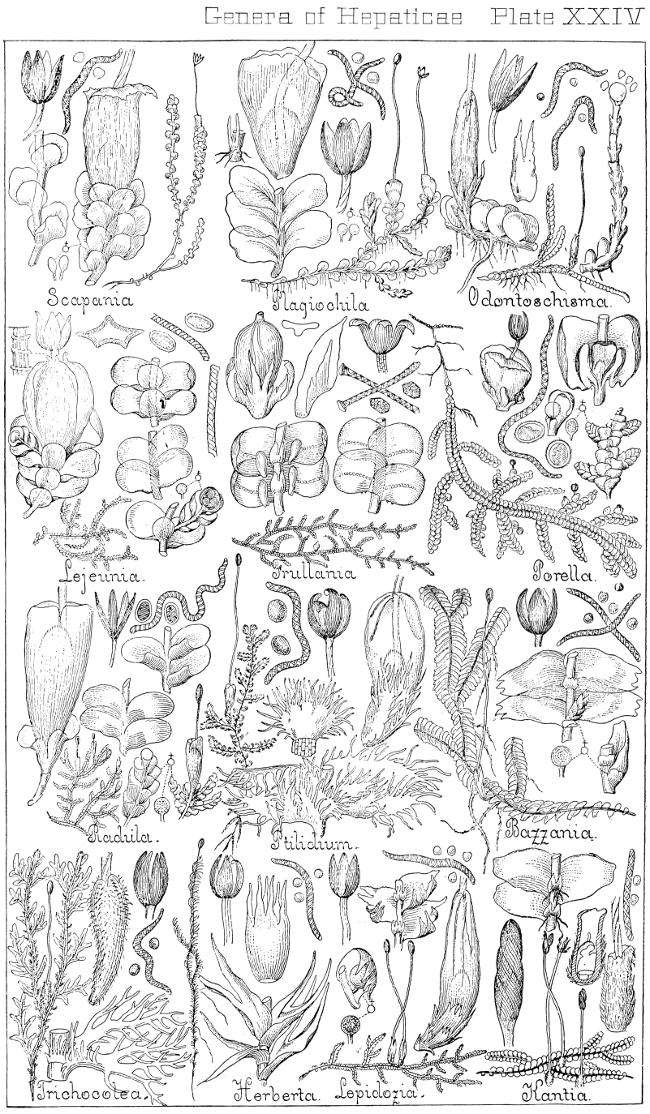 Genera of Hepaticae Plate XXIV
Scapania
Plagiochila
Odontoschisma.
Lejeunia.
Frullania
Porella.
Radula.
Ptilidium.
Bazzania.
Trichocolea.
Herberta.
Lepidozia.
Kantia.